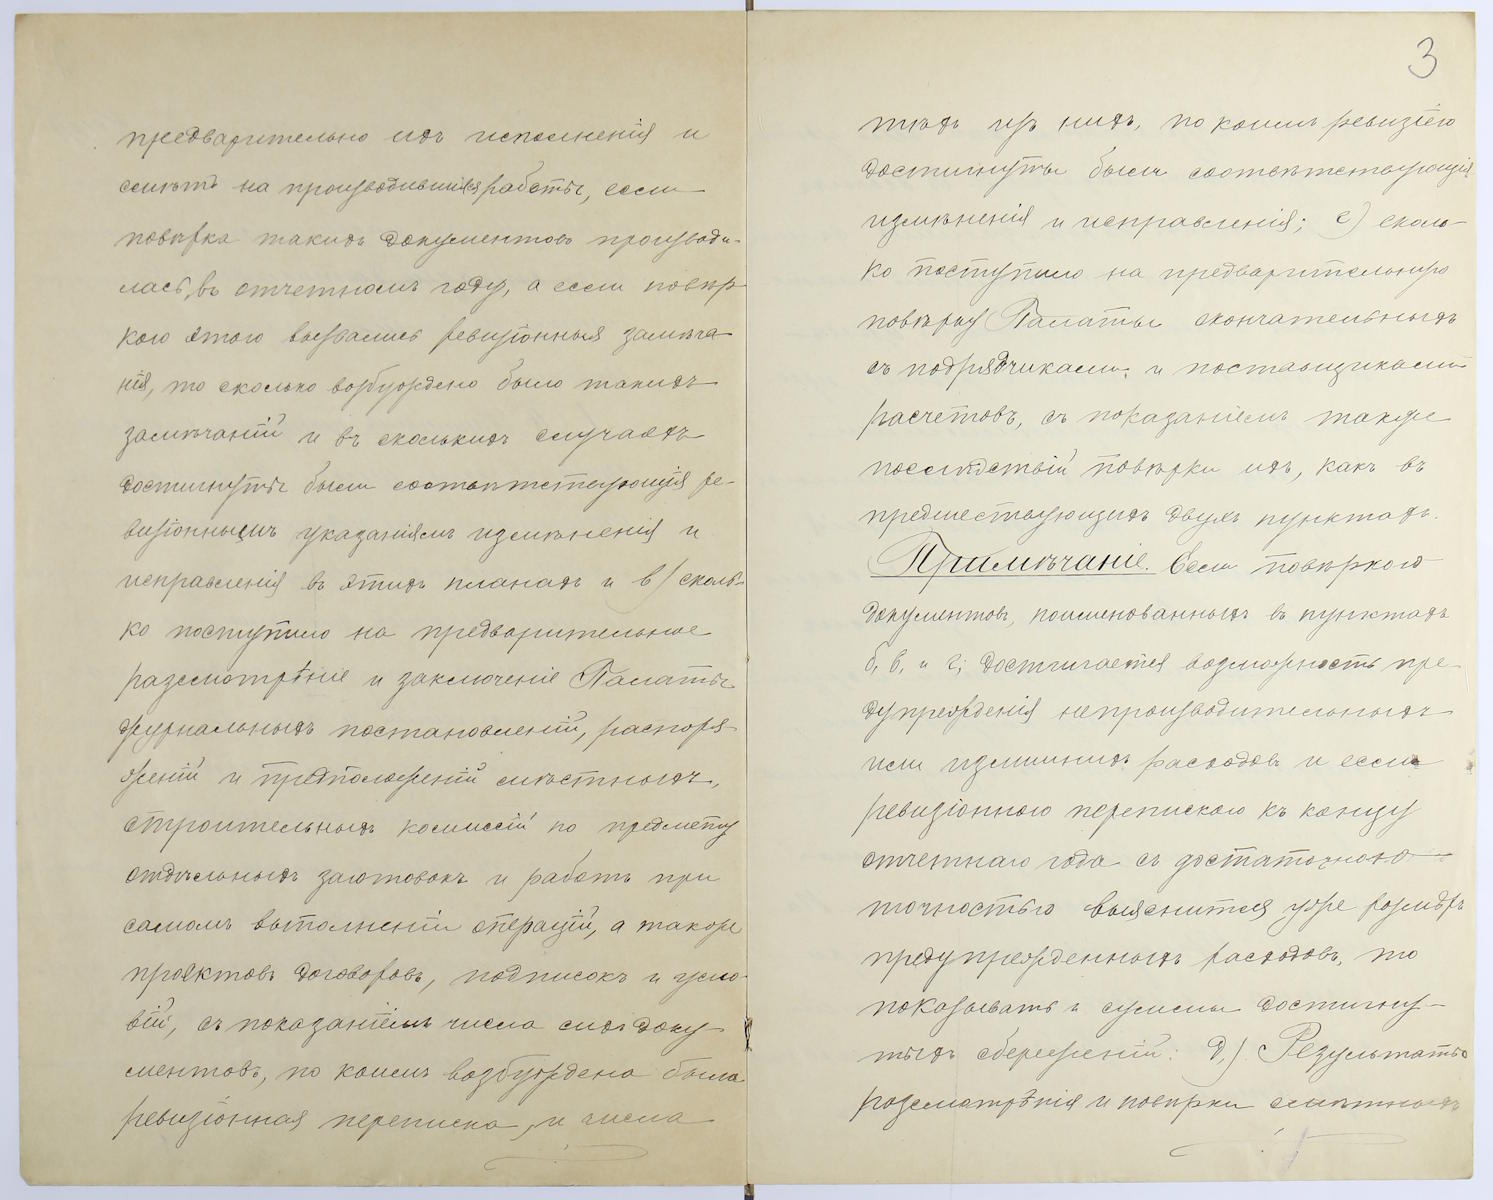 предварительно ихъ исполненія и
смѣтъ на производившіяся работы, если
повѣрка такихъ документовъ производи-
лась въ отчетномъ году, а если повѣр
кою этого вызвались ревизіонныя замѣча
нія, то сколько возбуждено было такихъ
замѣчаній и въ сколькихъ случаяхъ
достигнуты были соотвѣтствующія ре-
визіоннымъ указаніямъ измѣненія и
исправленія въ этихъ планахъ и в) сколь-
ко поступило на предварительное
разсмотрѣніе и заключеніе Палаты
журнальныхъ постановленій, распоря-
женій и предположеній мѣстныхъ,
строительныхъ комиссій по предмету
отдѣльныхъ заготовокъ и работъ при
самомъ выполненіи операцій, а также
проэктовъ договоровъ, подписокъ и усло-
вій, съ показаніемъ числа сихъ доку
ментовъ, по коимъ возбуждена была
ревизіонная переписка, и числа
3
тѣхъ изъ нихъ, по коимъ ревизіею
достигнуты были соотвѣтствующія
измѣненія и исправленія; г) сколь-
ко поступило на предварительную
повѣрку Палаты окончательныхъ
съ подрядчиками и поставщиками
расчетовъ, съ показаніемъ также
послѣдствій повѣрки ихъ, какъ въ
предшествующихъ двухъ пунктахъ.
Примѣчаніе. Если повѣркою
документовъ, поименованныхъ въ пунктахъ
б, в, и г, достигается возможность пре-
дупрежденія непроизводительныхъ
или излишнихъ расходовъ и если
ревизіонною перепискою къ концу
отчетнаго года съ достаточною
точностью выяснится уже размѣръ
предупрежденныхъ расходовъ, то
показывать и суммы достигну-
тыхъ сбереженій: д) Результаты
разсмотрѣнія и повѣрки смѣтныхъ